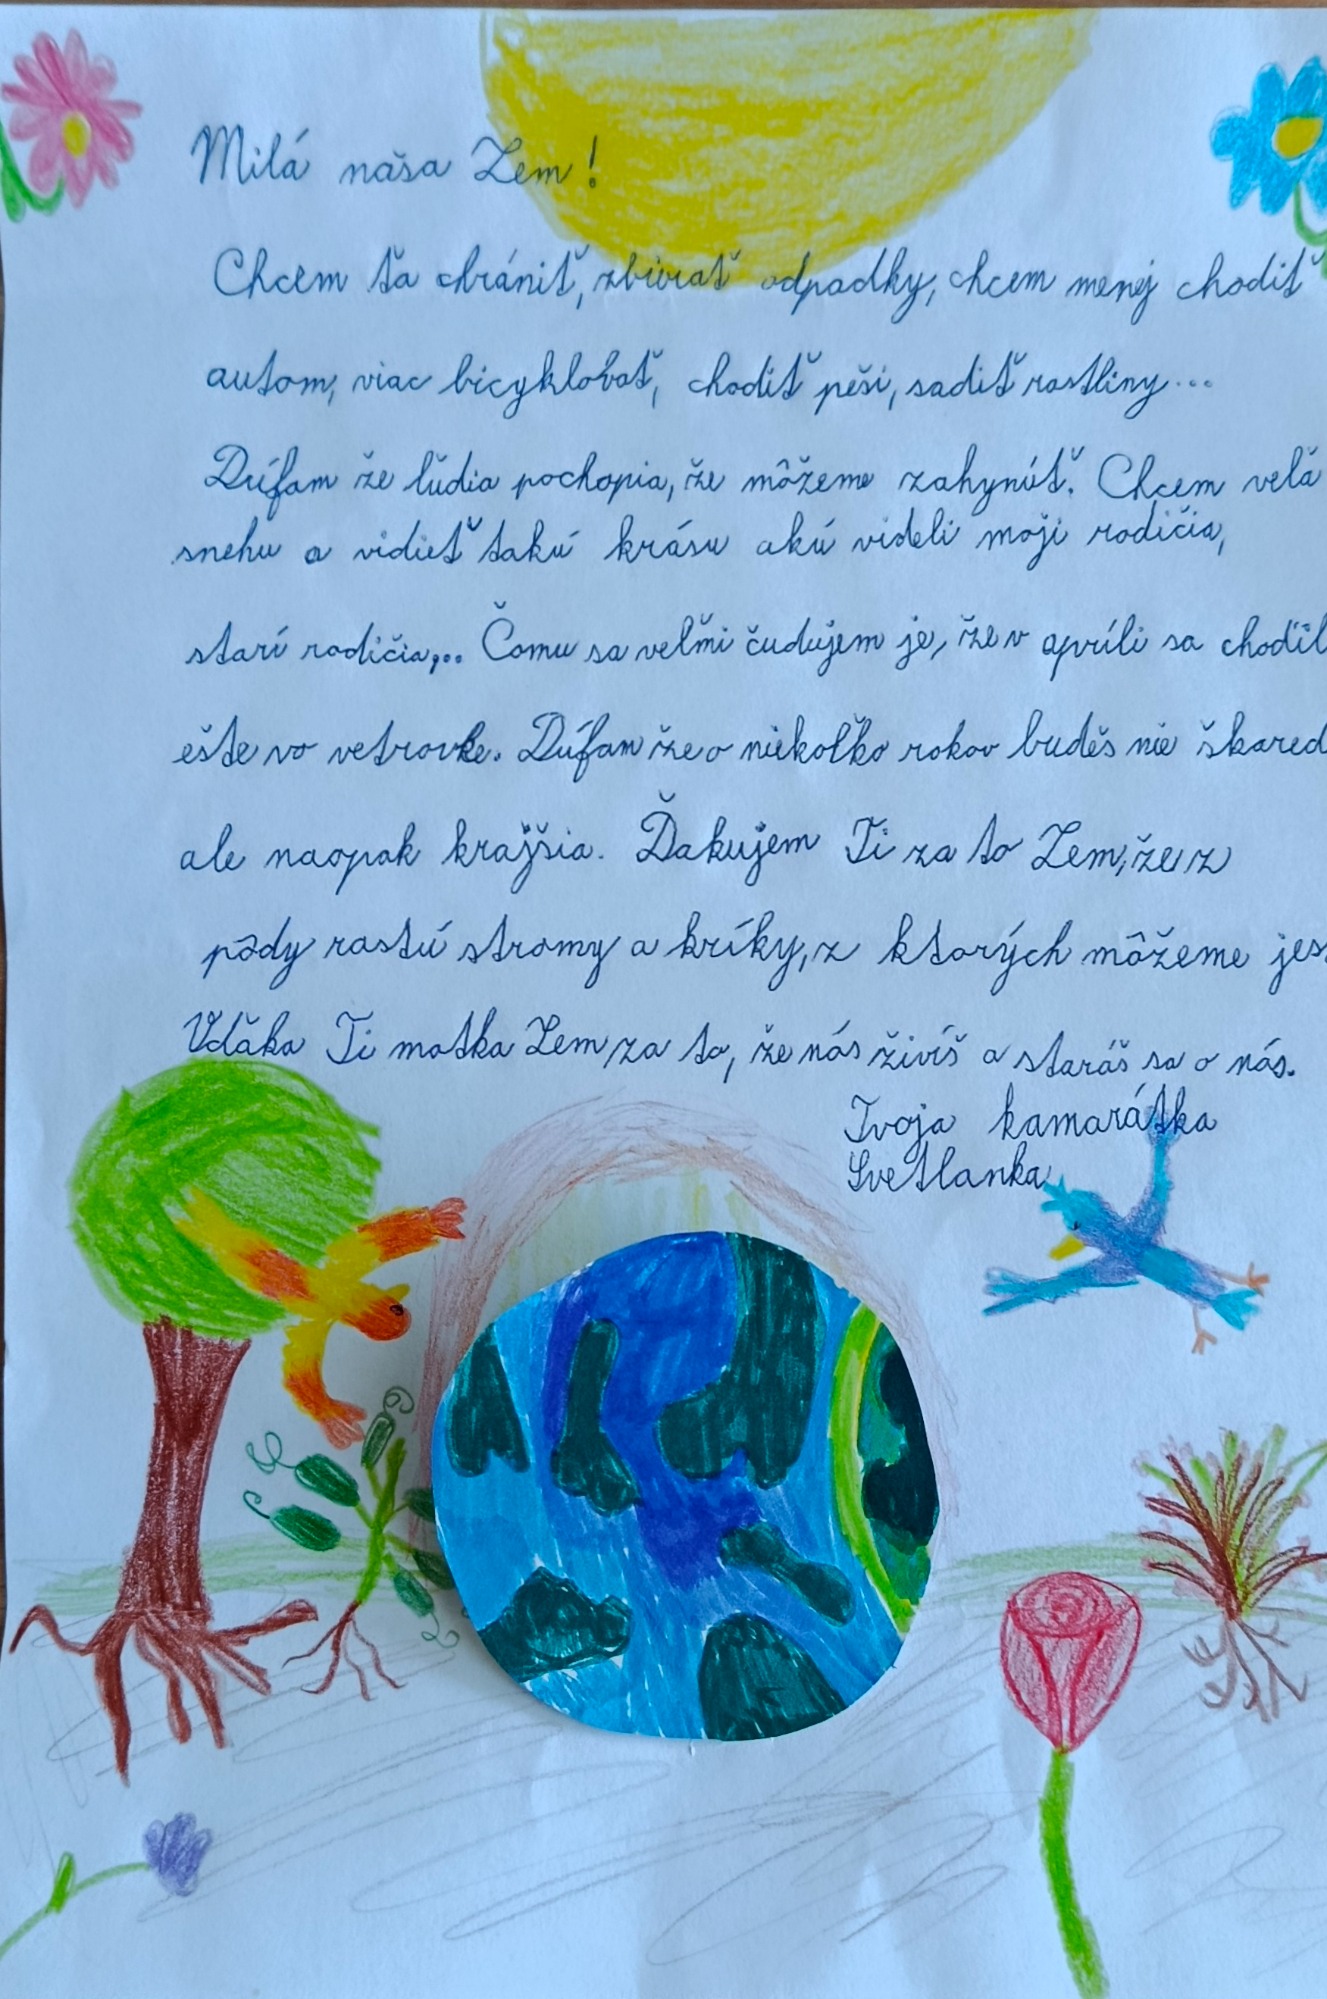 Milá naša Zem!
Chcem ťa chrániť, zbierať odpadky, chcem menej chodiť
autom, viac bicyklovať, chodiť peši, sadiť rastliny...
Dúfam že ľudia pochopia, že môžeme zahynúť. Chcem veľa
snehu a vidieť takú krásu akú videli moji rodičia,
starí rodičia,.. Čomu sa veľmi čudujem je, že v apríli sa chodil
ešte vo vetrovke. Dúfam že o niekoľko rokov budeš nie škared
ale naopak krajšia. Ďakujem Ti za to Zem, že z
pôdy rastú stromy a kríky, z ktorých môžeme jes
Vďaka Ti matka Zem za to, že nás živíš a staráš sa o nás.
Tvoja kamarátka
Svetlanka